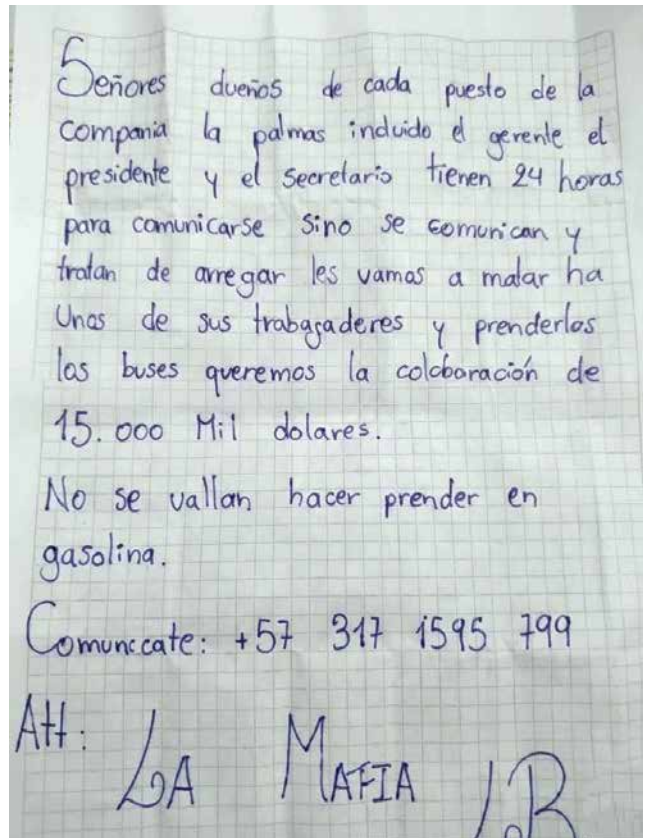 Señores dueños de cada puesto de la
compania la palmas incluido el gerente el
presidente y el secretario tienen 24 horas
para comunicarse sino se comunican y
tratan de arregar les vamos a matar ha
Unos de sus trabagaderes y prenderlos
los buses queremos la colcboración de
15.000 Mil dolares.
No se vallan hacer prender en
gasolina.
Comunccate: +57 317 1595 799
Att:
LA MAFIA LB